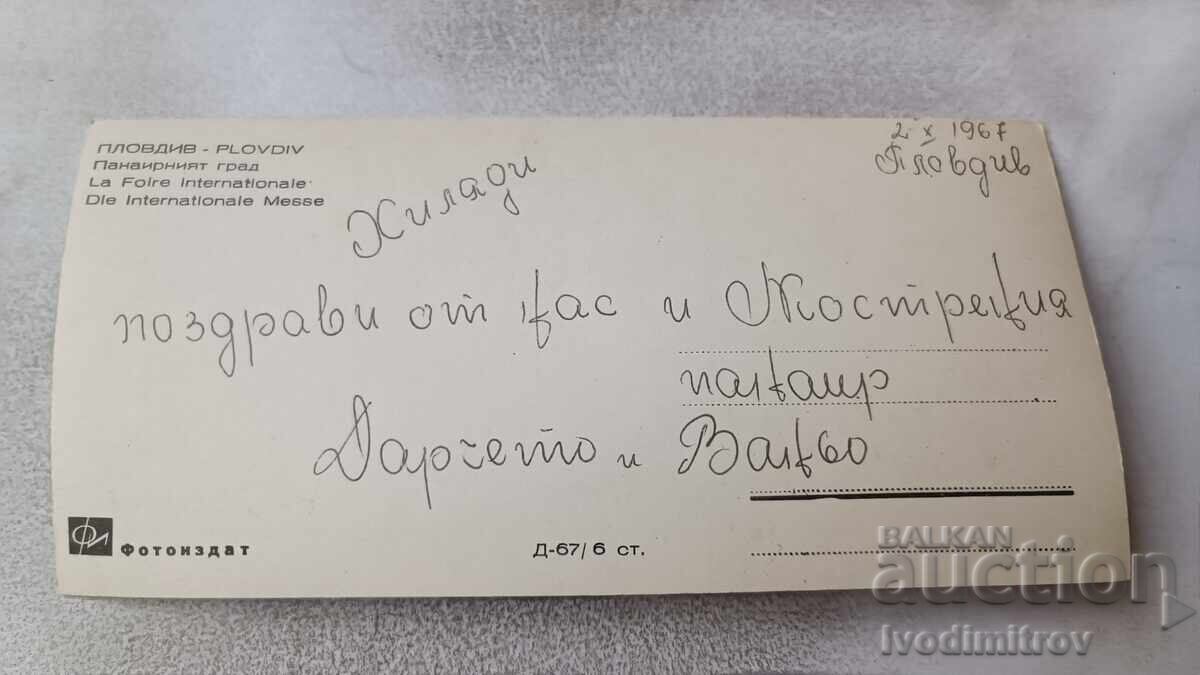 ПЛОВДИВ - PLOVDIV
Панаирният град
La Foire Internationale
Die Internationale Messe
2 X 1967
Пловдив
Хиляди
поздрави от нас и Мострения
панаир
Дарчето и Ваньо
ФИ Фотоиздат
Д-67/6 ст.
BALKAN
auction
Ivodimitrov